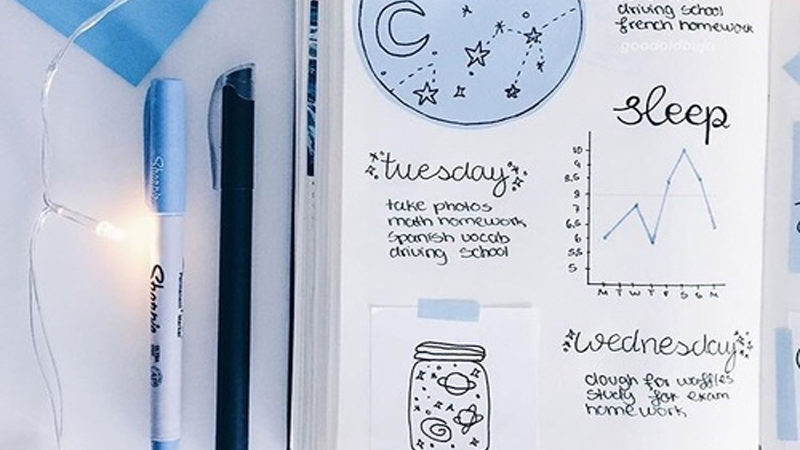 driving school
french homework
goodoldbujo
sleep
10
9
8.5
8
7
6.5
6
5.5
5
M T W T F S S M
tuesday
take photos
math homework
spanish vocab
driving school
wednesday
dough for waffles
study for exam
homework
Sharpie
Sharpie
Permanent Marker